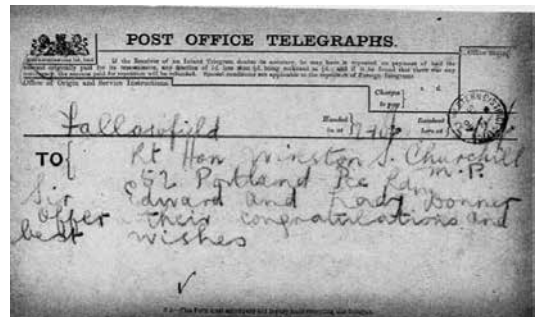 POST OFFICE TELEGRAPHS.
If the Receiver of an Inland Telegram doubts its accuracy, he may have it repeated on payment of half the
amount originally paid for its transmission, any fraction of 1d. less than ½d. being reckoned as ½d.; and if it be found that there was any
inaccuracy, the amount paid for repetition will be refunded. Special conditions are applicable to the repetition of Foreign Telegrams.
Office of Origin and Service Instructions.
Office Stamp.
Charges
to pay
s. d.
Fallowfield
Handed
in at
Received
here at
TO
Rt Hon Winston S. Churchill
M.P.
52 Portland Pce
Sir Edward and Lady Donner
Offer their congratulations and
best wishes